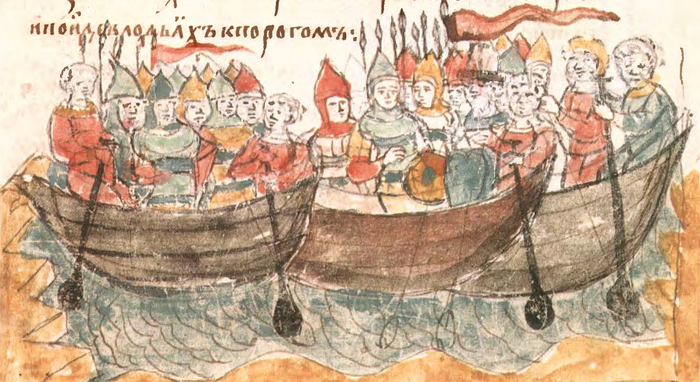 ипои́де влодьѧ́хъ кпорогомъ: